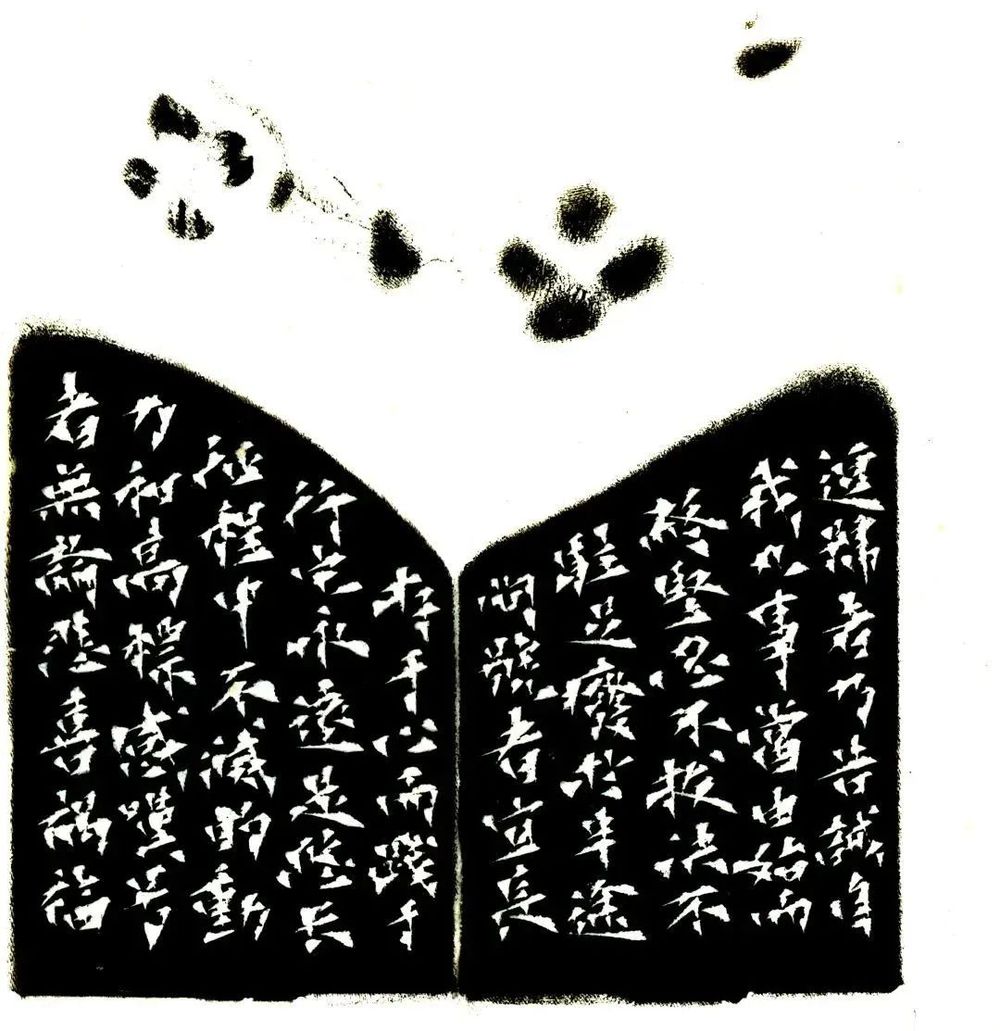 逗號者乃告誡自
我凡事當由始而
終堅忍不拔決不
駐足癈於半途
問號者宜是
存乎心而踐乎
行永遠是悠長
征程中不滅的動
力和高標感嘆号
者無論悲喜禍福